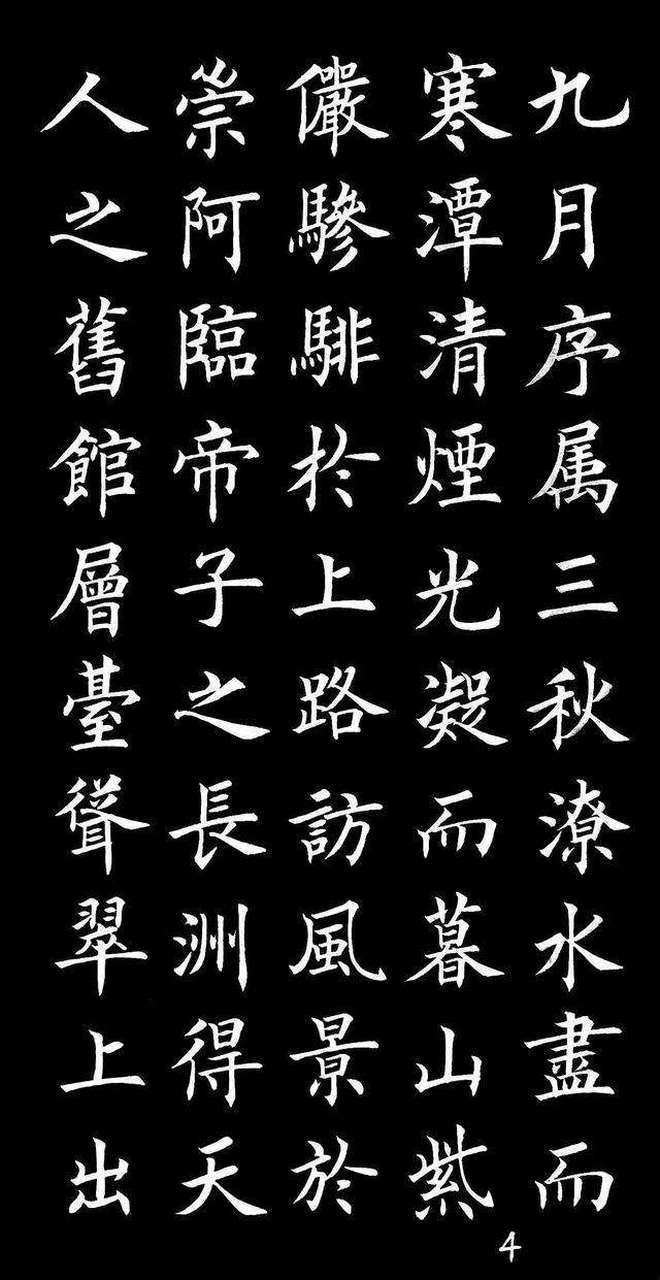 九月序属三秋潦水盡而
寒潭清煙光凝而暮山紫
儼驂騑於上路訪風景於
崇阿臨帝子之長洲得天
人之舊館層臺聳翠上出
4